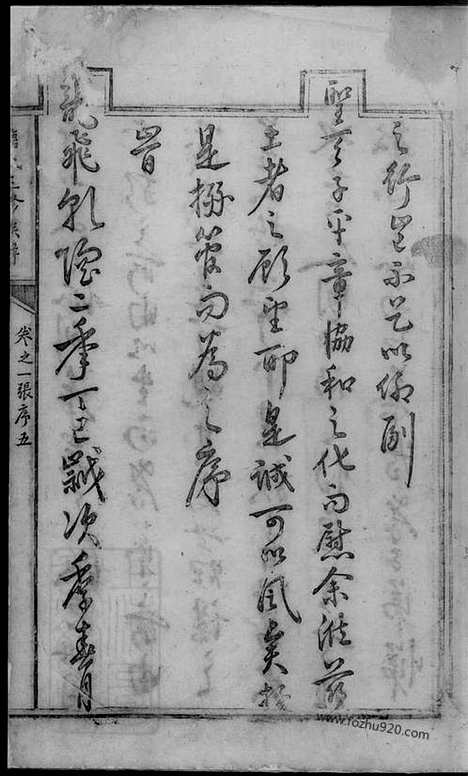 之所豈不足以仰副
聖天子平章協和之化而慰余淮茲
土者之願望耶是誠可以風矣於
是搦管而為之序
時
龍飛乾隆二年丁巳歲次季春月
卷之一張序五
www.fozhu920.com